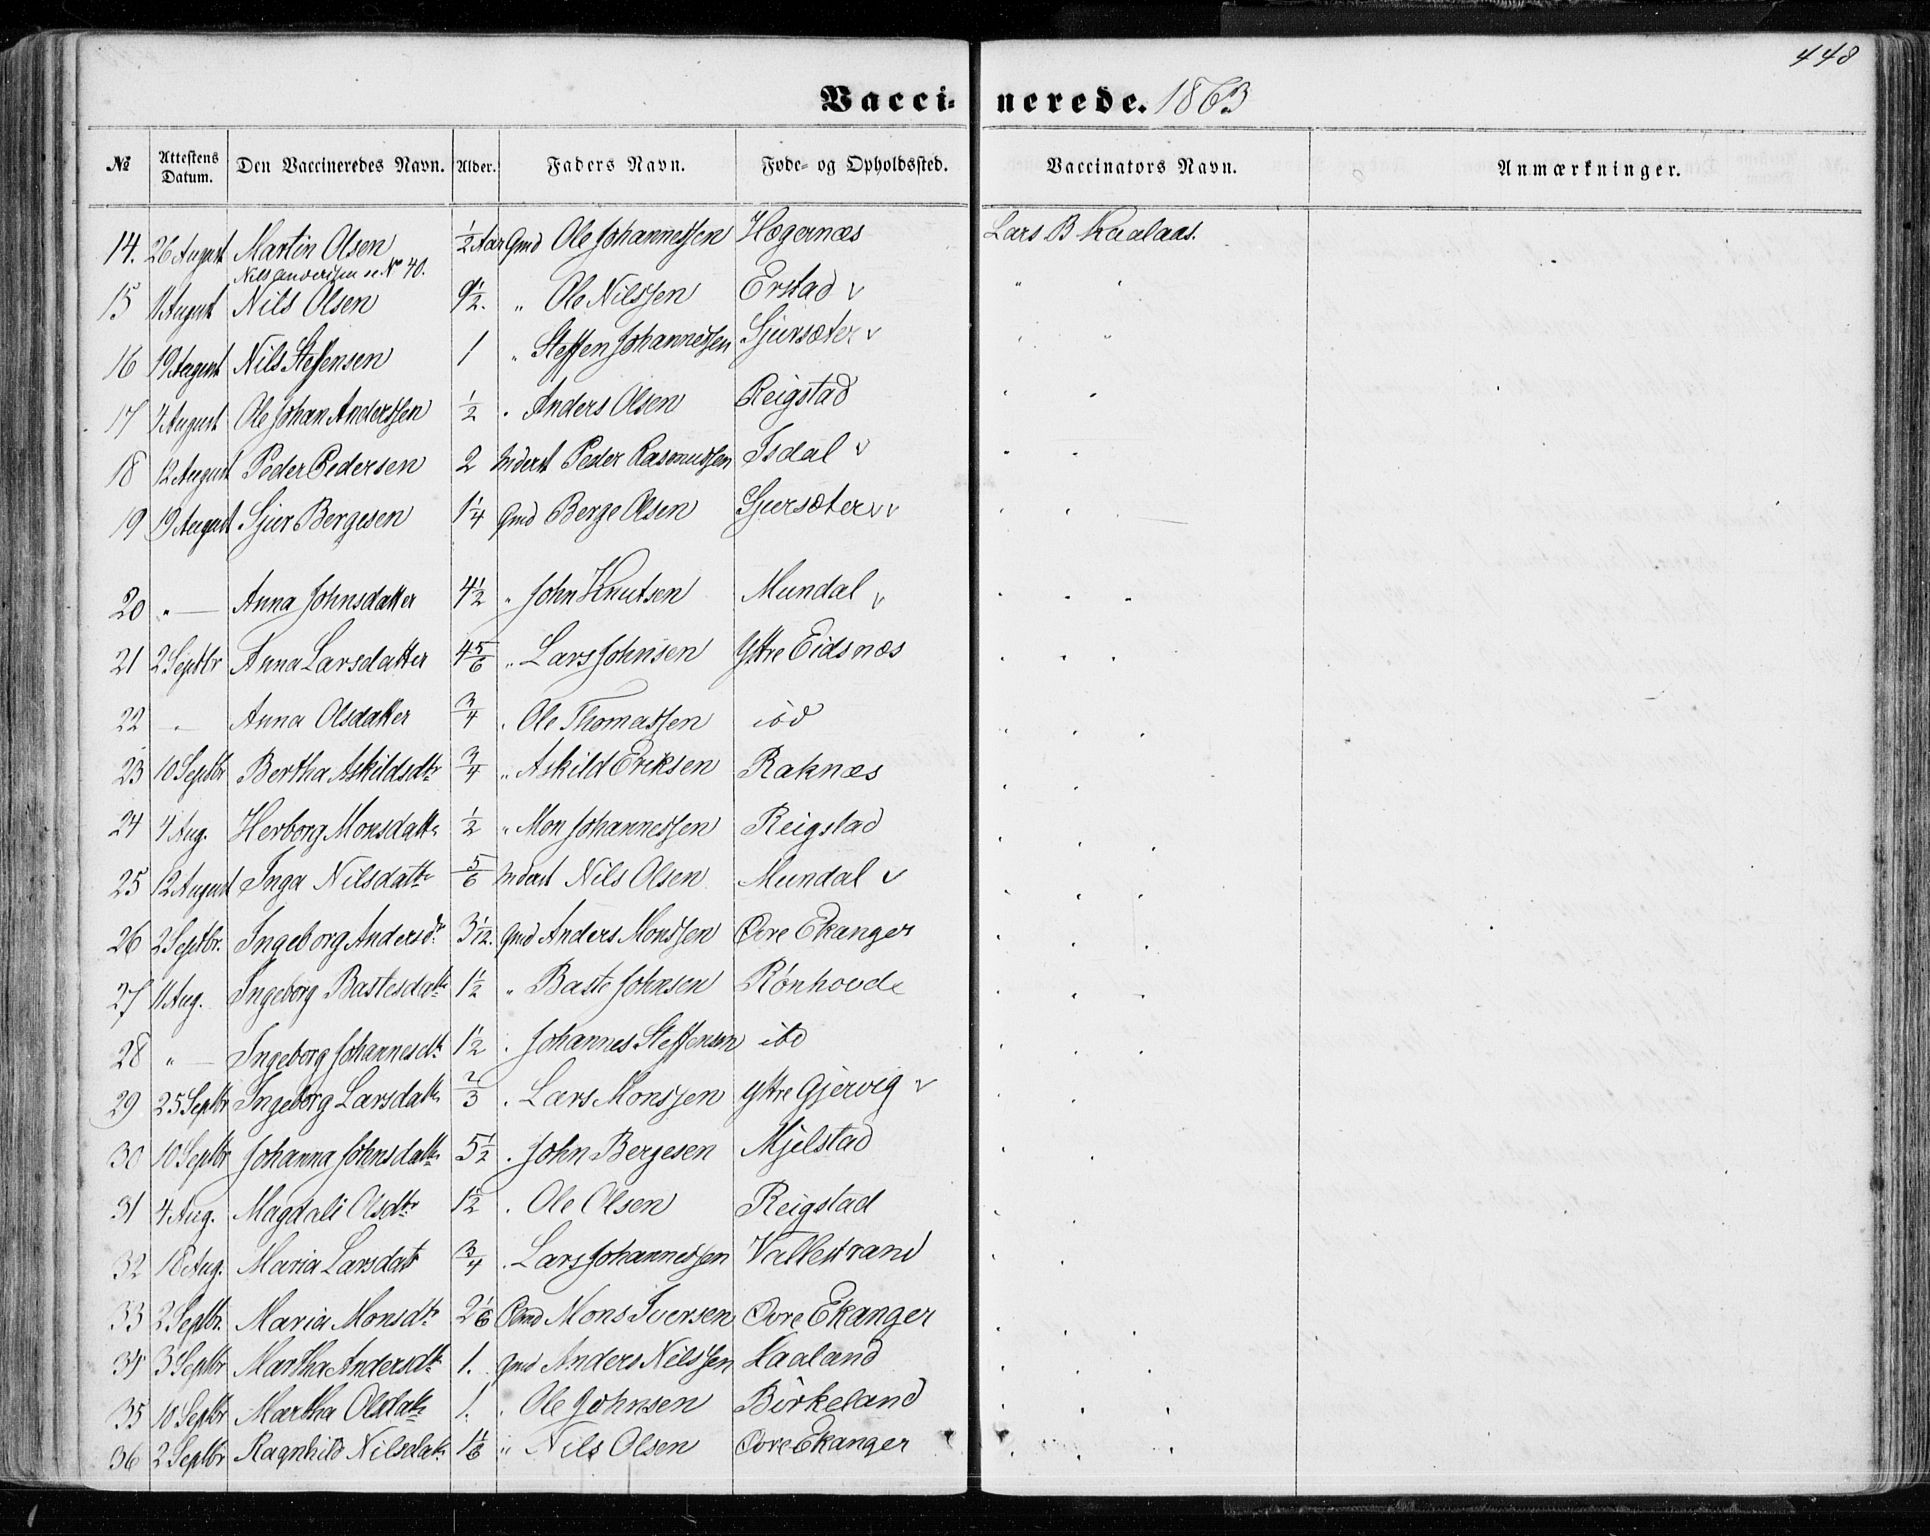 448
Vaccinerede. 1863
№ Attestens Datum. Den Vaccineredes Navn. Alder. Faders Navn. Føde- og Opholdssted. Vaccinators Navn. Anmærkninger.
14. 26 August Martin Olsen 1/2 Aar Gmd Ole Johannessen Hegernæs Lars B Kaalaas.
Nils Anderssen se No 40.
15 11 August Nils Olsen 9 1/2. " Ole Nilssen Erstad v " "
16 19 August Nils Steffensen 1 " Steffen Johannessen Sjursæter v " "
17 4 August Ole Johan Anderssen 1/2 " Anders Olsen Reigstad " "
18 12 August Peder Pedersen 2 Inderst Peder Rasmussen Isdal v " "
19 19 August Sjur Bergesen 1 1/4 Gmd Berge Olsen Sjursæter v v " "
20 " — Anna Johnsdatter 4 1/2 " John Knutsen Mundal v " " "
21 2 Septbr Anna Larsdatter 4 5/6 " Lars Johnsen Yttre Eidsnæs " " "
22 " Anna Olsdatter 3/4 " Ole Thomassen ibd " " "
23 10 Septbr Bertha Askildsdtr 3/4 " Askild Eriksen Raknæs " "
24 4 Aug. Herborg Monsdattr 1/2 " Mon Johannessen Reigstad " " "
25 12 August Inga Nilsdattr 5/6 Inderst Nils Olsen Mundal v " " "
26 2 Septbr. Ingeborg Andersdr 3 1/12. Gmd Anders Monssen Øvre Ekanger " " "
27 11 Aug. Ingeborg Bastesdattr 1 1/2 " Baste Johnsen Rønhovde " " "
28 " — Ingeborg Johannesdtr 1 1/2 " Johannes Steffensen ibd " " "
29 25 Septbr Ingeborg Larsdattr 2/3 " Lars Monssen Yttre Gjervig v " "
30 10 Septbr Johanna Johnsdattr 5 1/2 " John Bergesen Mjelstad " "
31 4 Aug. Magdali Olsdtr 1 1/2 " Ole Olsen Reigstad " "
32 18 Aug. Maria Larsdatr 3/4 " Lars Johannessen Vallestrand " "
33 2 Septbr. Maria Monsdtr 2 1/6 Gmd Mons Iversen Øvre Ekanger " " "
34 3 Septbr Martha Andersdtr 1. Gmd Anders Nilssen Haaland " " "
35 10 Septbr Martha Olsdatr 1. " Ole Johnsen Birkeland " " "
36 2 Septbr Ragnhild Nilsdatr 1 1/6 " Nils Olsen Øvre Ekanger " " "